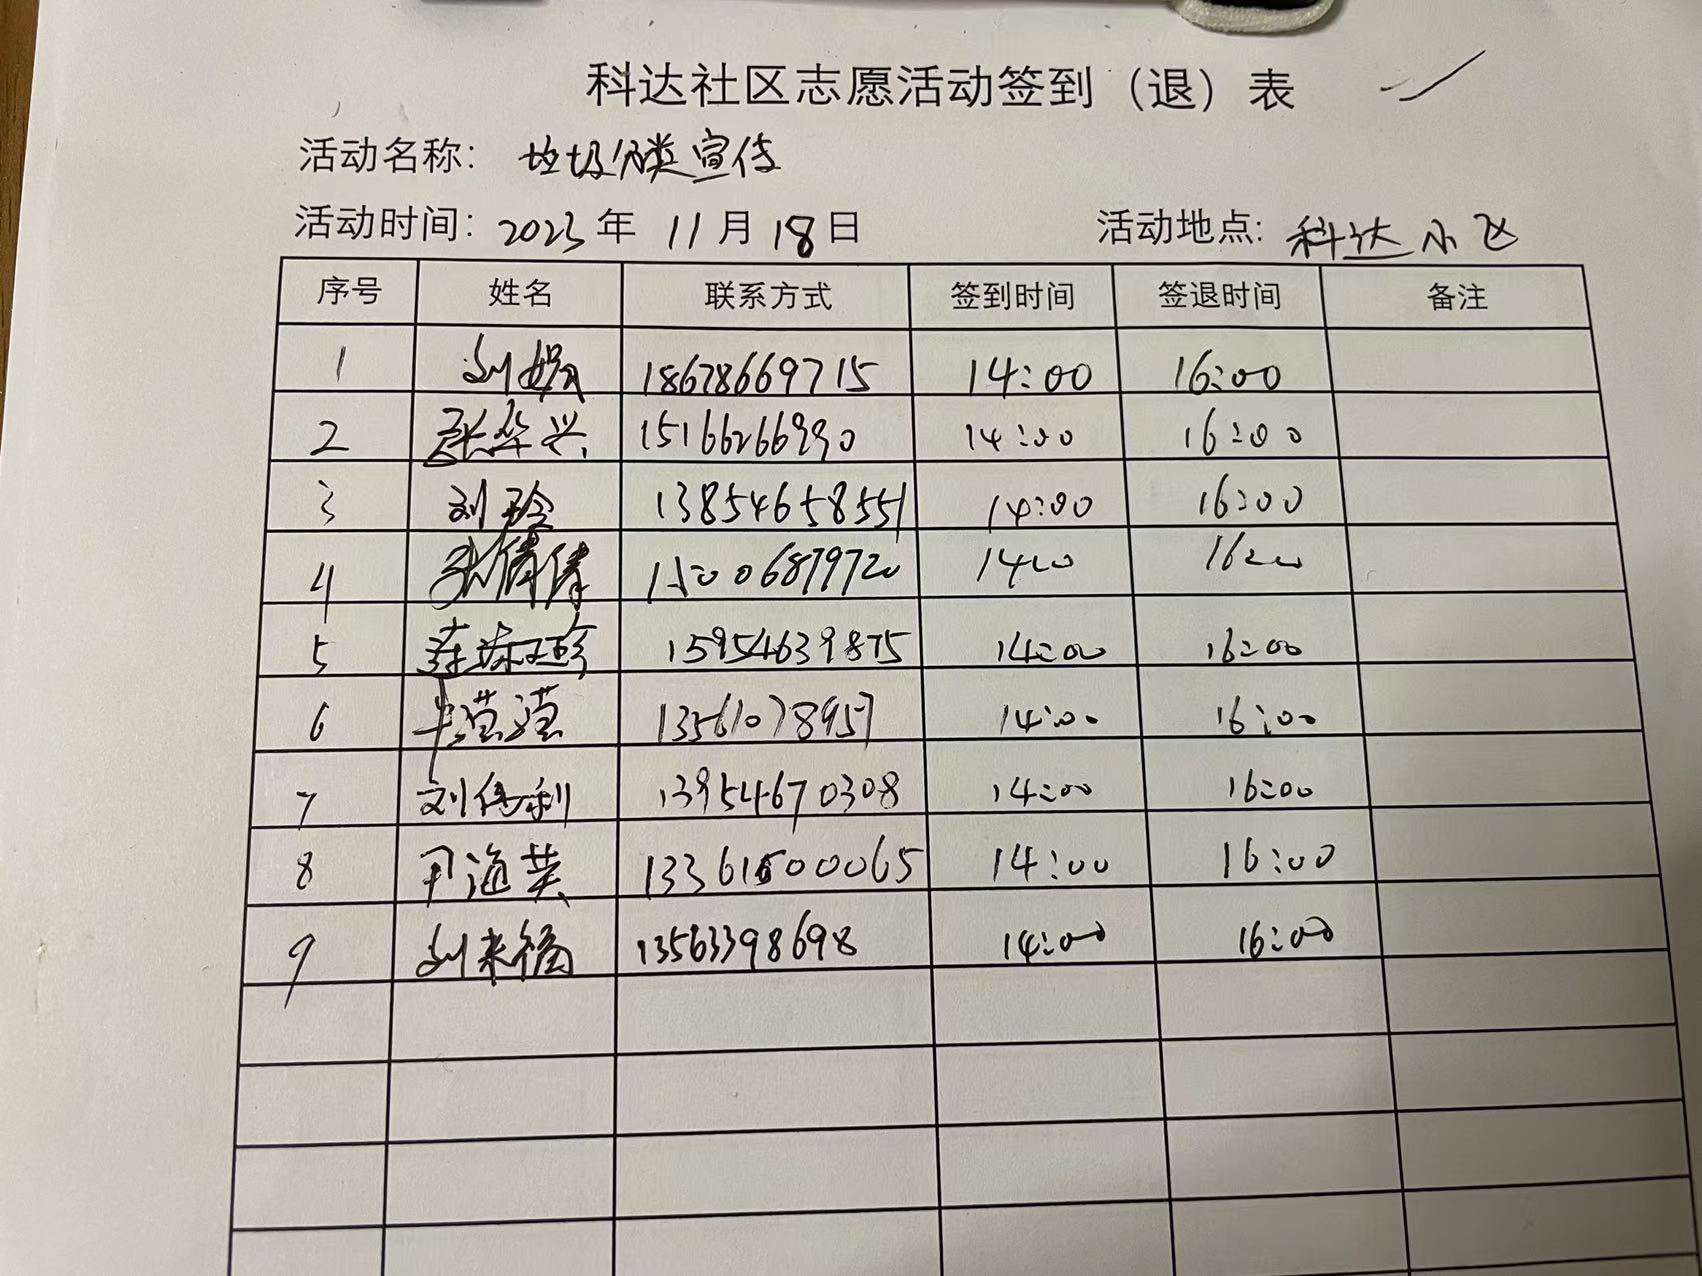 科达社区志愿活动签到（退）表
活动名称： 垃圾分类宣传
活动时间：2023年 11月18日 活动地点: 科达小区
序号 姓名 联系方式 签到时间 签退时间 备注
1 刘娟 18678669715 14:00 16:00
2 张华兴 15166266990 14:00 16:00
3 刘玲 13854658551 14:00 16:00
4 张倩倩 15006879720 14:00 16:00
5 15954639875 14:00 16:00
6 13561078957 14:00 16:00
7 刘伟利 13954670308 14:00 16:00
8 尹海英 13361500065 14:00 16:00
9 刘来福 13563398698 14:00 16:00